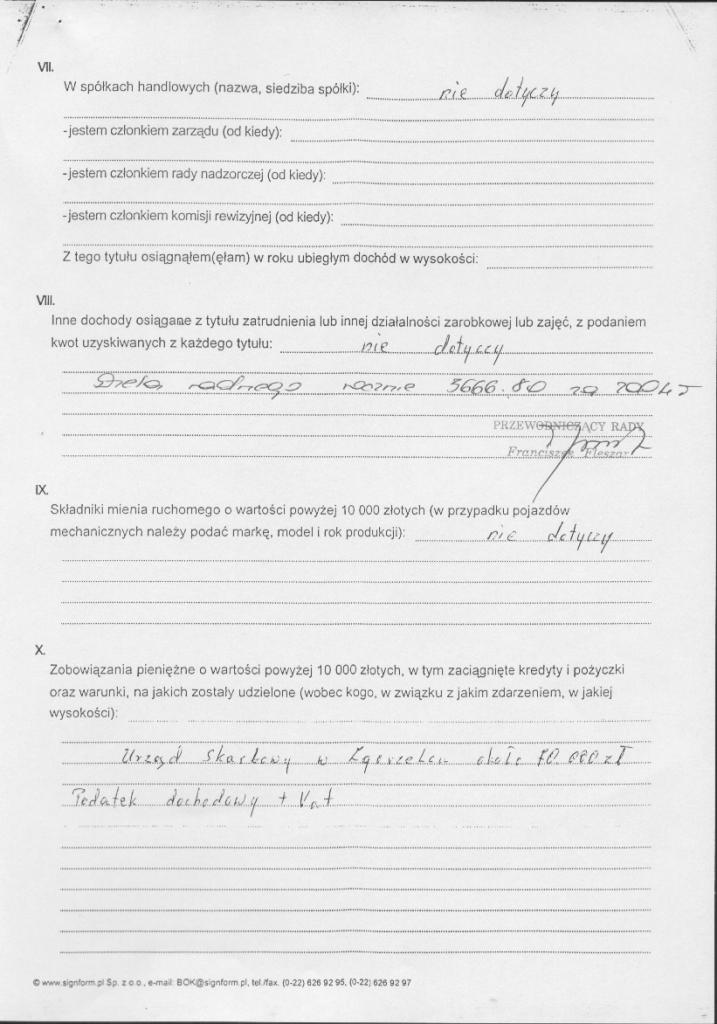 VII.
W spółkach handlowych (nazwa, siedziba spółki): nie dotyczy
-jestem członkiem zarządu (od kiedy):
-jestem członkiem rady nadzorczej (od kiedy):
-jestem członkiem komisji rewizyjnej (od kiedy):
Z tego tytułu osiągnąłem(ęłam) w roku ubiegłym dochód w wysokości:
VIII.
Inne dochody osiągane z tytułu zatrudnienia lub innej działalności zarobkowej lub zajęć, z podaniem
kwot uzyskiwanych z każdego tytułu: nie dotyczy
radnego rocznie 3666.80 za 2004
PRZEWODNICZĄCY RADY
Franciszek Fleszar
IX.
Składniki mienia ruchomego o wartości powyżej 10 000 złotych (w przypadku pojazdów
mechanicznych należy podać markę, model i rok produkcji): nie dotyczy
X.
Zobowiązania pieniężne o wartości powyżej 10 000 złotych, w tym zaciągnięte kredyty i pożyczki
oraz warunki, na jakich zostały udzielone (wobec kogo, w związku z jakim zdarzeniem, w jakiej
wysokości):
Urząd Skarbowy w Zgorzelcu około 70 000 zł
Podatek dochodowy + Vat
© www.signform.pl Sp. z o.o., e-mail: BOK@signform.pl, tel./fax. (0-22) 626 92 95, (0-22) 626 92 97